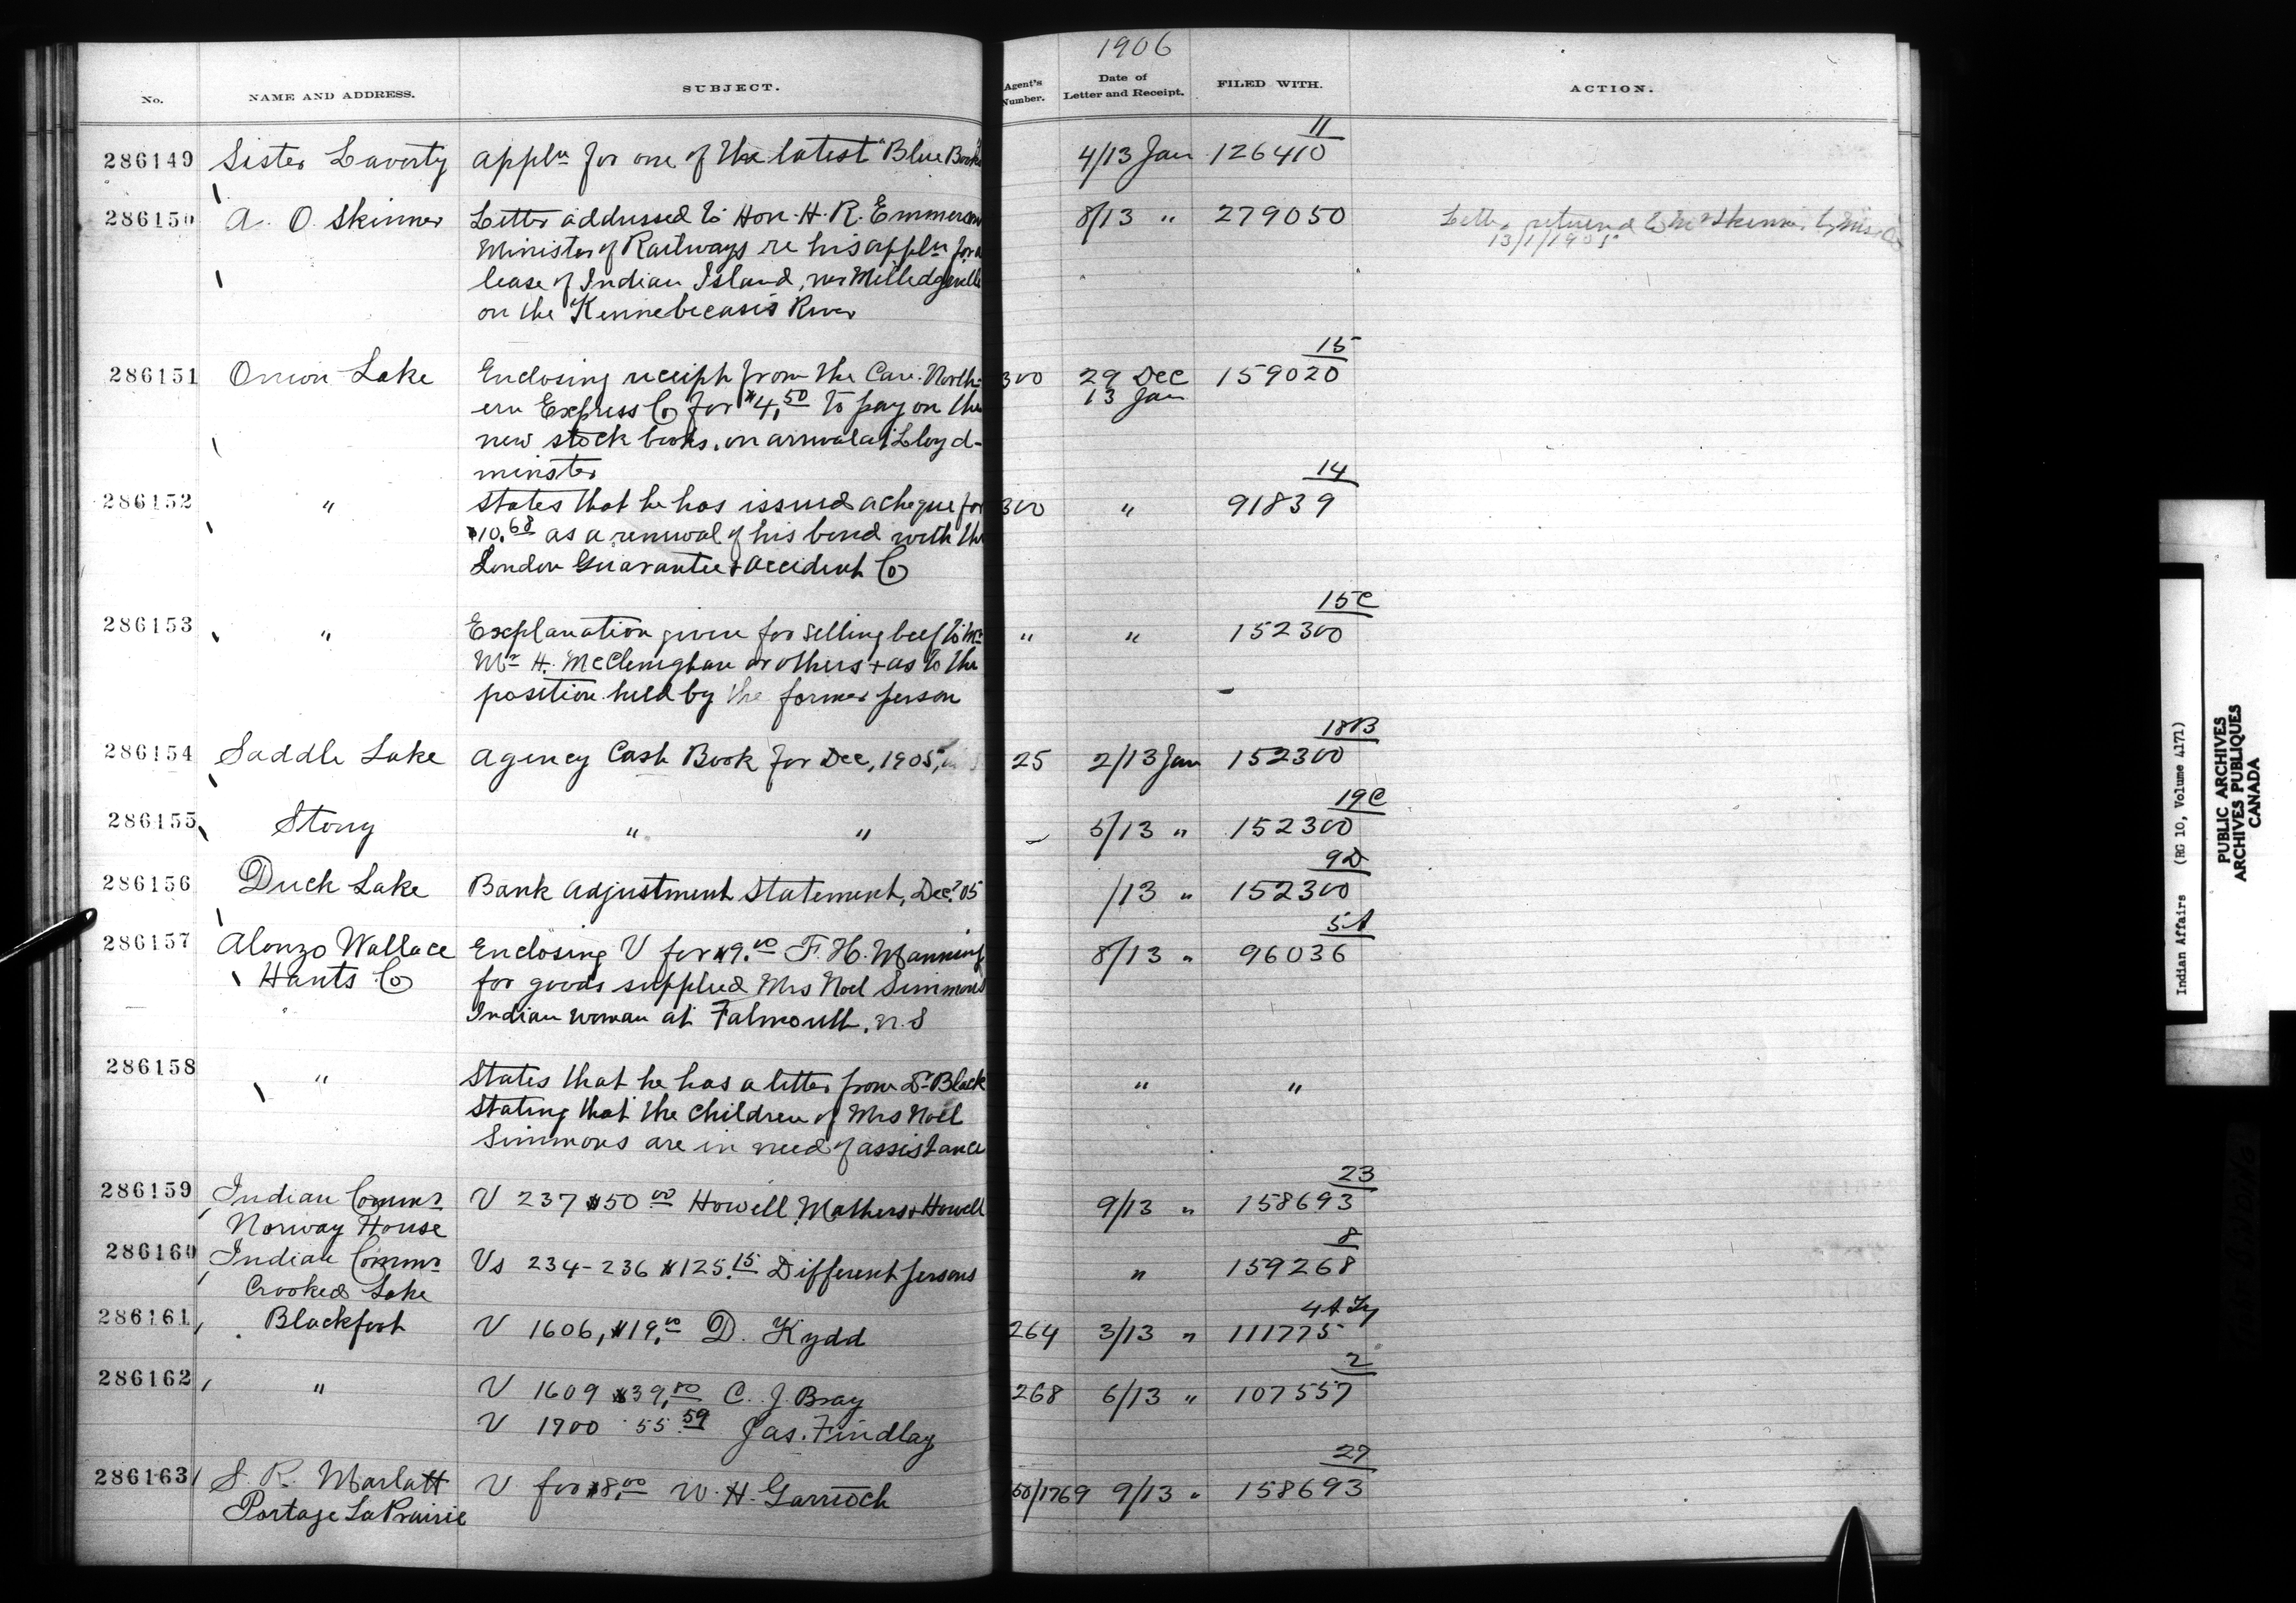 1906
No. NAME AND ADDRESS. SUBJECT. Agent's Number. Date of Letter and Receipt. FILED WITH. ACTION.
11
286149 Sister Laverty Appln for one of the latest "Blue Books 4/13 Jan 126410
286150 A. O. Skinner Letter addressed to Hon. H. R. Emmerson 8/13 " 279050 returned to Mr Skinner by
Minister of Railways re his appln for a 13/1/1905
lease of Indian Island, nr Milledgeville
on the Kennebecasis River
15
286151 Onion Lake Enclosing receipt from the Can. North- 300 29 Dec 159020
ern Express Co for $4.50 to pay on the 13 Jan
new stock books, on arrival at Lloyd-
minster
14
286152 " States that he has issued a cheque for 300 " 91839
$10.68 as a renewal of his bond with the
London Guarantee & Accident Co
15C
286153 " Explanation given for selling beef to " " 152300
Mr H. McClenighan or others + as to the
position held by the former person
18B
286154 Saddle Lake Agency Cash Book for Dec, 1905, 25 2/13 Jan 152300
19C
286155 Stony " " 5/13 " 152300
9D
286156 Duck Lake Bank Adjustment Statement, Decr 05 /13 " 152300
5A
286157 Alonzo Wallace Enclosing V for $9.00 F. H. Manning 8/13 " 96036
Hants Co for goods supplied Mrs Noel Simmons
Indian woman at Falmouth, N.S
286158 " States that he has a letter from Dr Black " "
stating that the children of Mrs Noel
Simmons are in need of assistance
23
286159 Indian Commr V 237 $50.00 Howell Mathers & Howell 9/13 " 158693
Norway House
8
286160 Indian Commr Vs 234-236 $125.15 Different persons " 159268
Crooked Lake
286161 Blackfoot V 1606, $19.00 D. Kydd 264 3/13 " 111775
2
286162 " V 1609 $39.80 C. J. Bray 268 6/13 " 107557
V 1700 55.59 Jas. Findlay
27
286163 S. R. Marlatt V for $8.00 W. H. Garrioch 50/1769 9/13 " 158693
Portage La Prairie
Indian Affairs (RG 10, Volume 4171)
PUBLIC ARCHIVES
ARCHIVES PUBLIQUES
CANADA